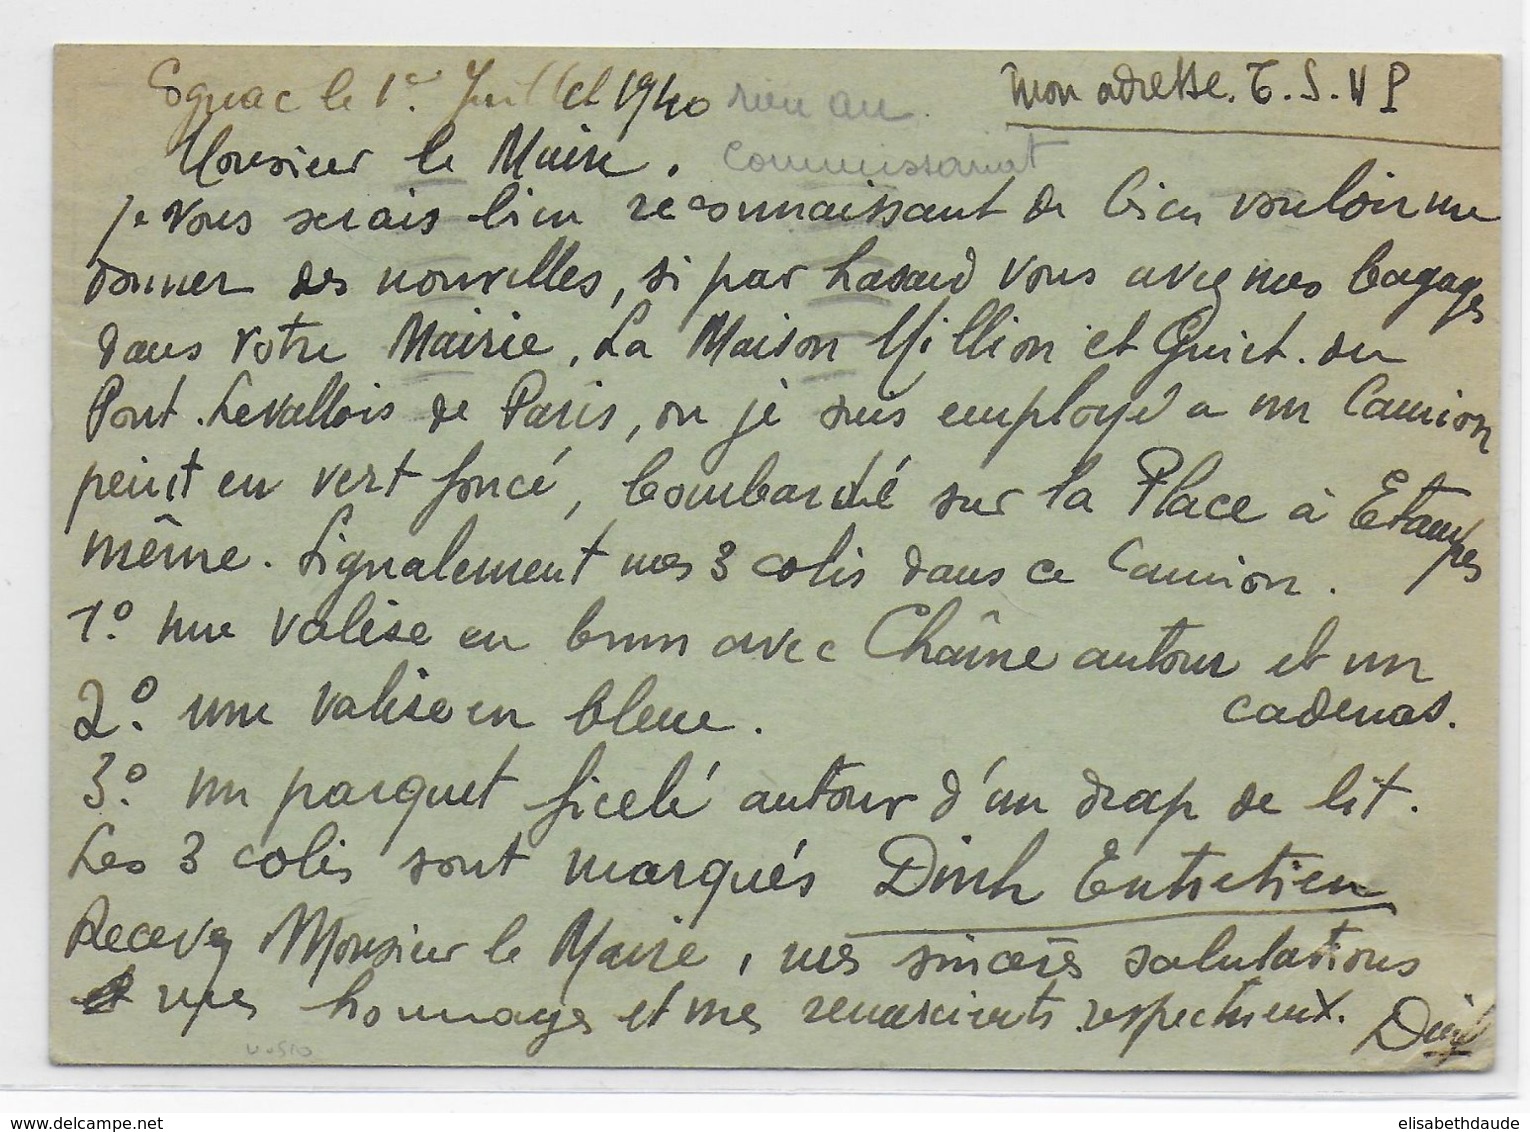 le 1er Juillet 1940 rien au
mon adresse. T. S. V P
commissariat
Monsieur le Maire.
Je vous serais bien reconnaissant de bien vouloir me
donner des nouvelles, si par hasard vous avez mes bagages
dans votre Mairie, La Maison Million et Guiet. du
Pont Levallois de Paris, ou je suis employé a un Camion
peint en vert foncé, bombardé sur la Place à Etampes
même. Signalement mes 3 colis dans ce Camion.
1.° une valise en brun avec Chaîne autour et un
cadenas.
2.° une valise en bleue.
3.° un parquet ficelé autour d'un drap de lit.
Les 3 colis sont marqués Dinh Entretien
Recevez Monsieur le Maire, mes sincères salutations
mes homages et mes remercients respectueux.
Dinh
www.delcampe.net
elisabethdaude